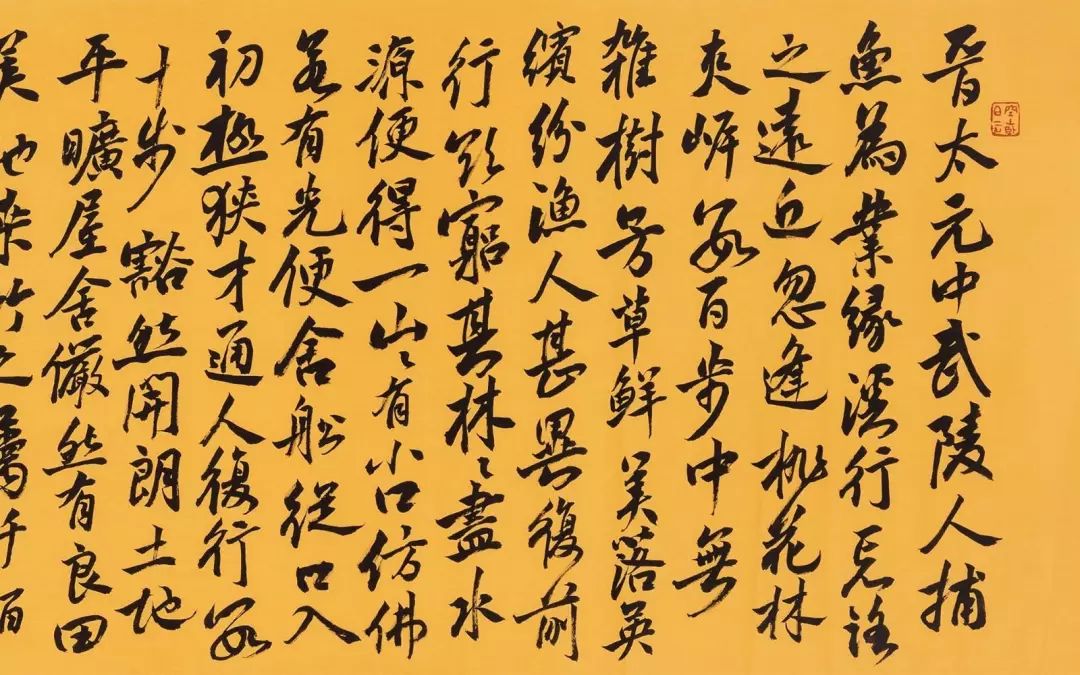 晉太元中武陵人捕
魚為業緣溪行忘路
之遠近忽逢桃花林
夾岸數百步中無
雜樹芳草鮮美落英
繽紛漁人甚異復前
行欲窮其林〻盡水
源便得一山〻有小口仿佛
若有光便舍船從口入
初極狹才通人復行數
十步豁然開朗土地
平曠屋舍儼然有良田
美池桑竹之屬